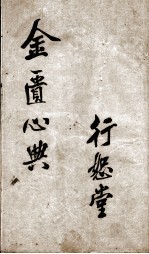 行恕堂
金匱心典